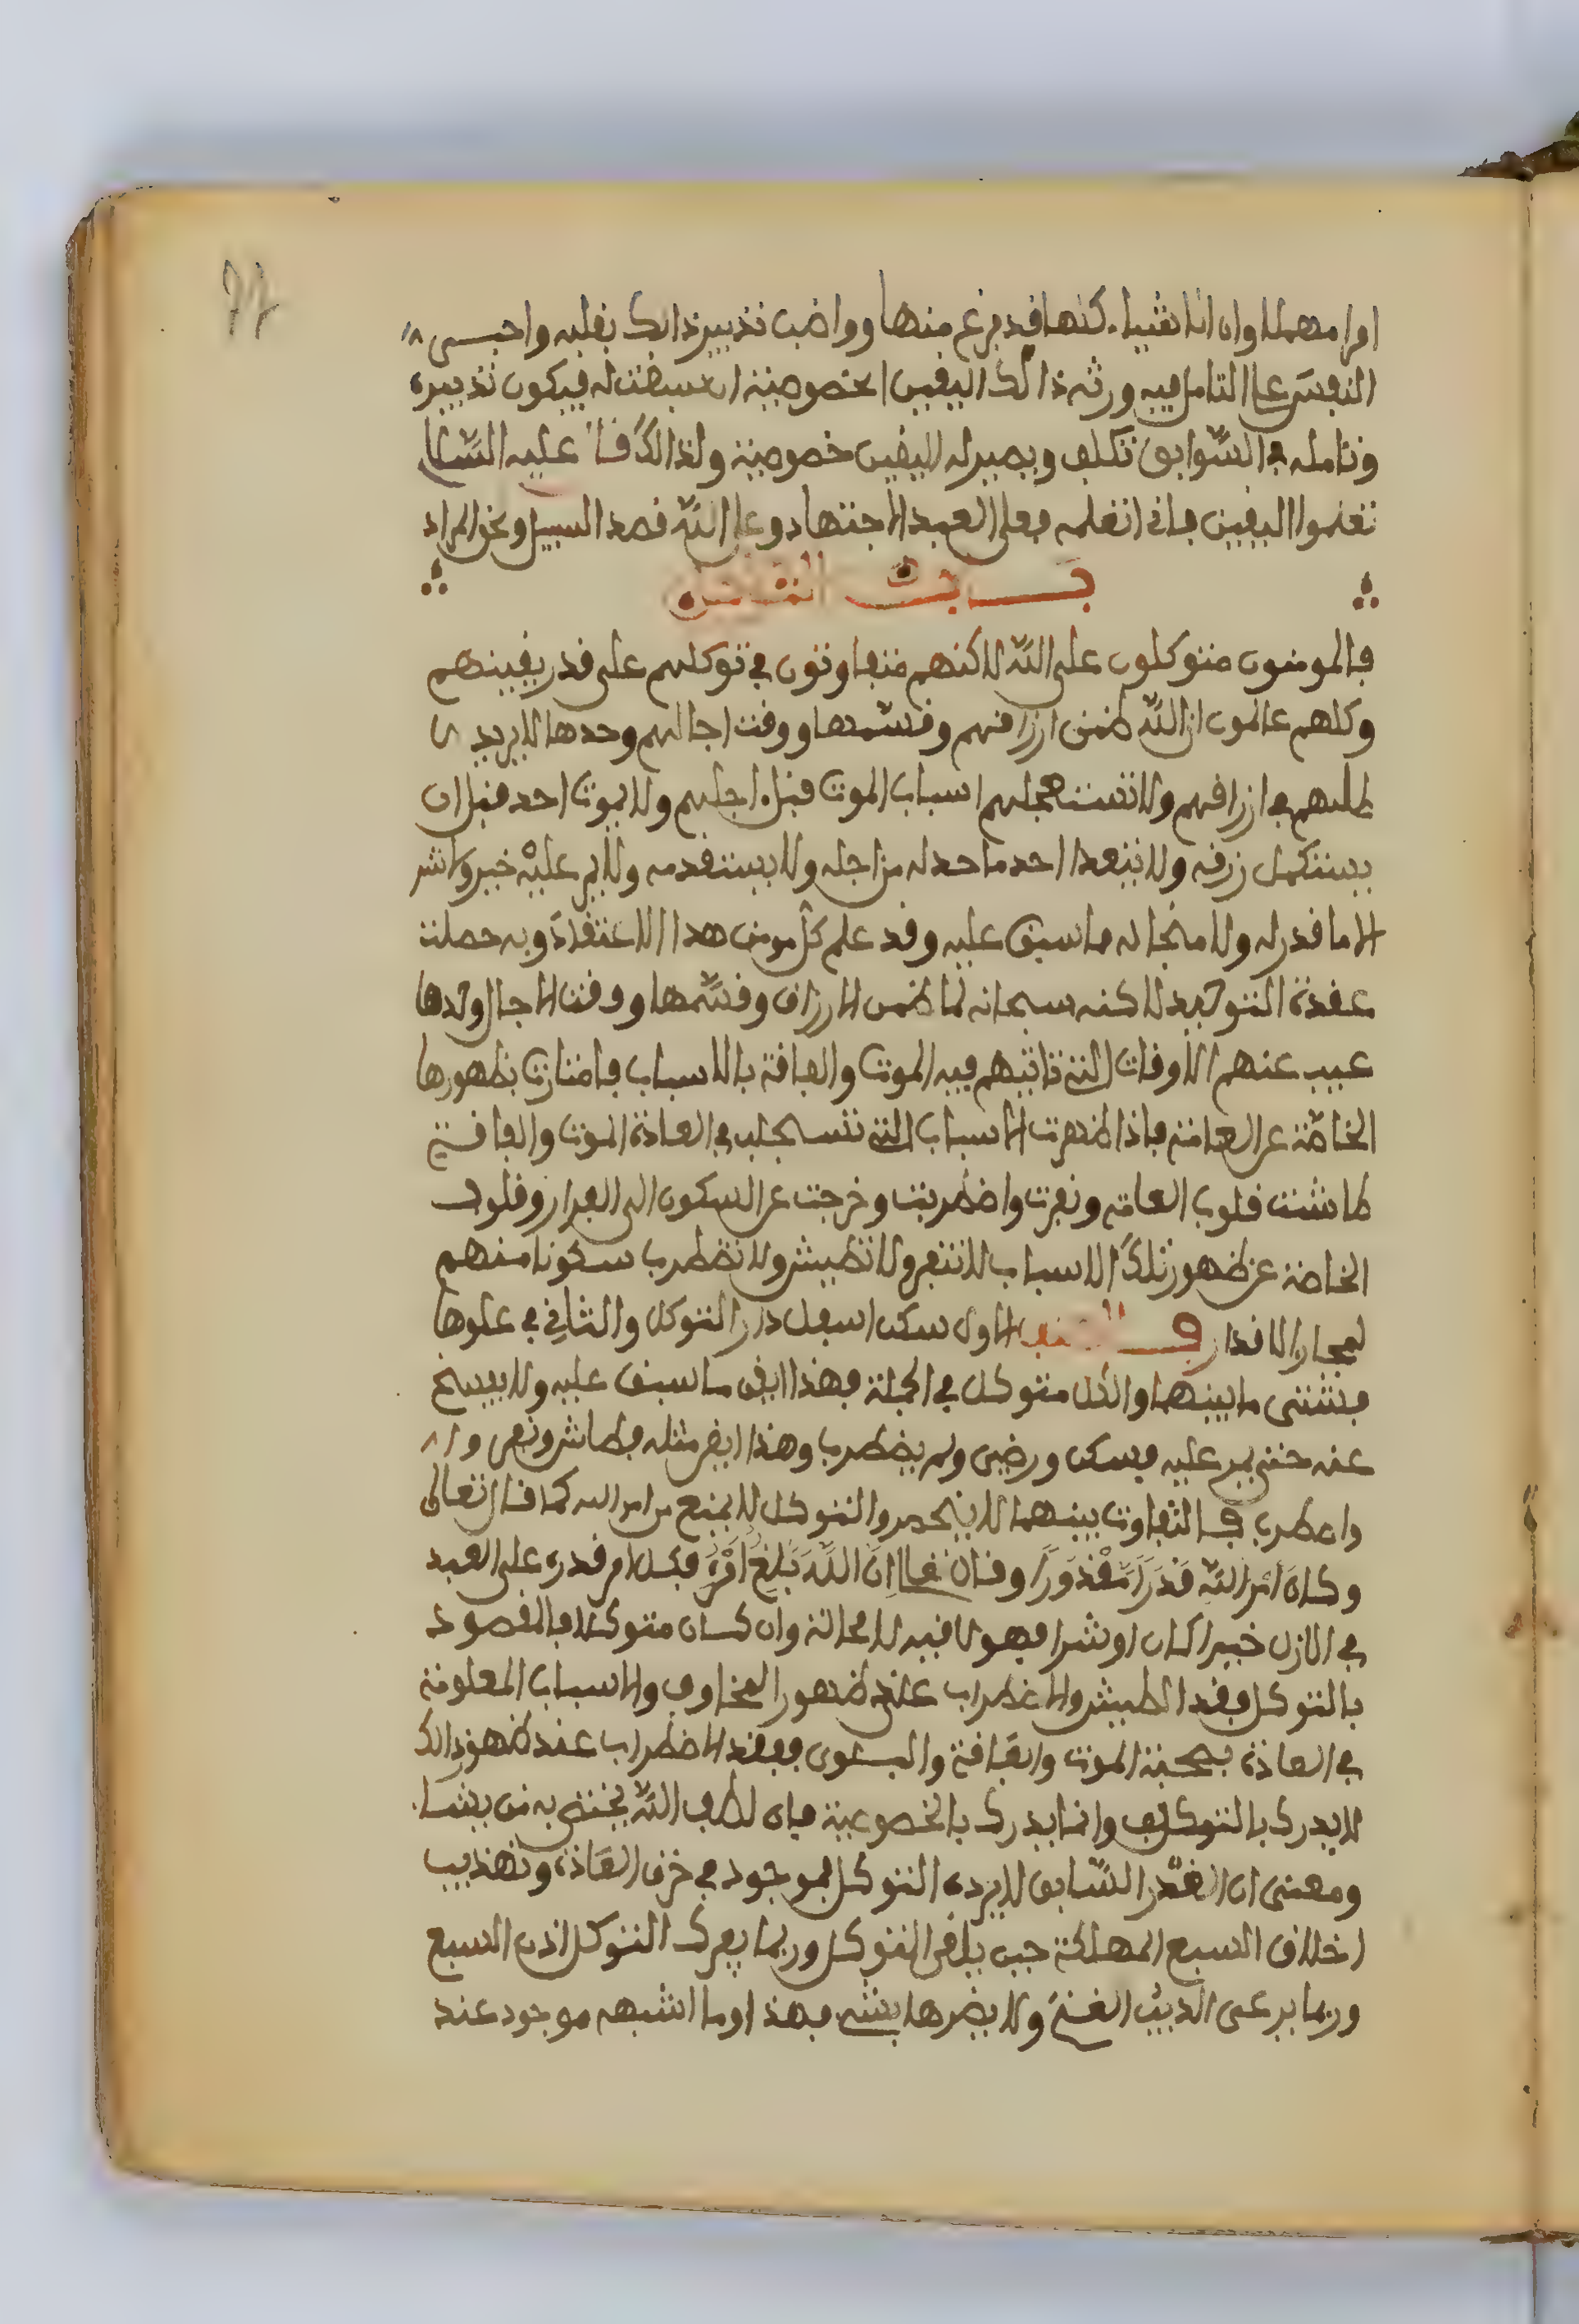 امرا مهملا وان الاشياء كلها قد فرغ منها وواضب تدبير ذالك بقلبه واحبس
النفس على التامل فيه ورثه ذالك اليقين الخصوصية ان سبقت له فيكون تدبيره
وتامله في السوابق تكلف ويصير له اليقين خصوصية ولذالك قال عليه السلام
تعلموا اليقين فاني اتعلمه فعلى العبد الاجتهاد وعلى الله قصد السبيل ونحو المراد
بــاب التوكل
فالمومنون متوكلون على الله لاكنهم متفاوتون في توكلهم على قدر يقينهم
وكلهم عالمون ان الله ضمن ارزاقهم وقسمها ووقت اجالهم وحدها لا يزيد
طلبهم في ارزاقهم ولا تستعجلهم اسباب الموت قبل اجلهم ولا يموت احد قبل ان
يستكمل رزقه ولا يتعدا احد ما حد له من اجله ولا يستقدمه ولا يمر عليه خير ولا شر
الا ما قدر له ولا منجا له مما سبق عليه وقد علم كل مومن هذا الاعتقاد وبه حصلت
عقدة التوحيد لاكنه سبحانه لما ضمن الارزاق وقسمها ووقت الاجال وحدها
غيب عنهم الاوقات التي تاتيهم فيه الموت والفاقة بالاسباب فامتازت بظهورها
الخاصة عن العامة فاذا ظهرت الاسباب التي تستجلب في العادة الموت والفاقة
طاشت قلوب العامة ونفرت واضطربت وخرجت عن السكون الى الفرار وقلوب
الخاصة عن ظهور تلك الاسباب لا تنفر ولا تطيش ولا تضطرب سكونا منهم
لمجار الاقدار الاول سكن اسفل دار التوكل والثاني في علوها
فشتى ما بينهما والكل متوكل في الجملة فهذا ايقن ما سبق عليه ولا يفسخ
عنه حتى يمر عليه فسكن ورضى ولم يضطرب وهذا ايقن مثله فطاش ونفر
واضطرب فالتفاوت بينهما لا ينحصر والتوكل لا يمنع من امر الله كما قال تعالى
وكان امر الله قدرا مقدورا وقال تعالى ان الله بلغ امره فكل امر قدره على العبد
في الازل خيرا كان او شرا فهو لاقيه لا محالة وان كان متوكلا فالمقصود
بالتوكل فقد الطيش والاضطراب عند ظهور المخاوف والاسباب المعلومة
في العادة بصحبة الموت والفاقة والبلوى ففقد الاضطراب عند ظهور ذالك
لا يدرك بالتكلف وانما يدرك بالخصوصية فان لطف الله يختص به من يشاء
ومعنى ان القدر السابق لا يرده التوكل فموجود في خرق العادة وتهذيب
اخلاق السبع المهلكة حين يلقى المتوكل وربما يعرك المتوكل اذن السبع
وربما يرعى الذيب الغنم ولا يضرها بشيء فهذا وما اشبهه موجود عند